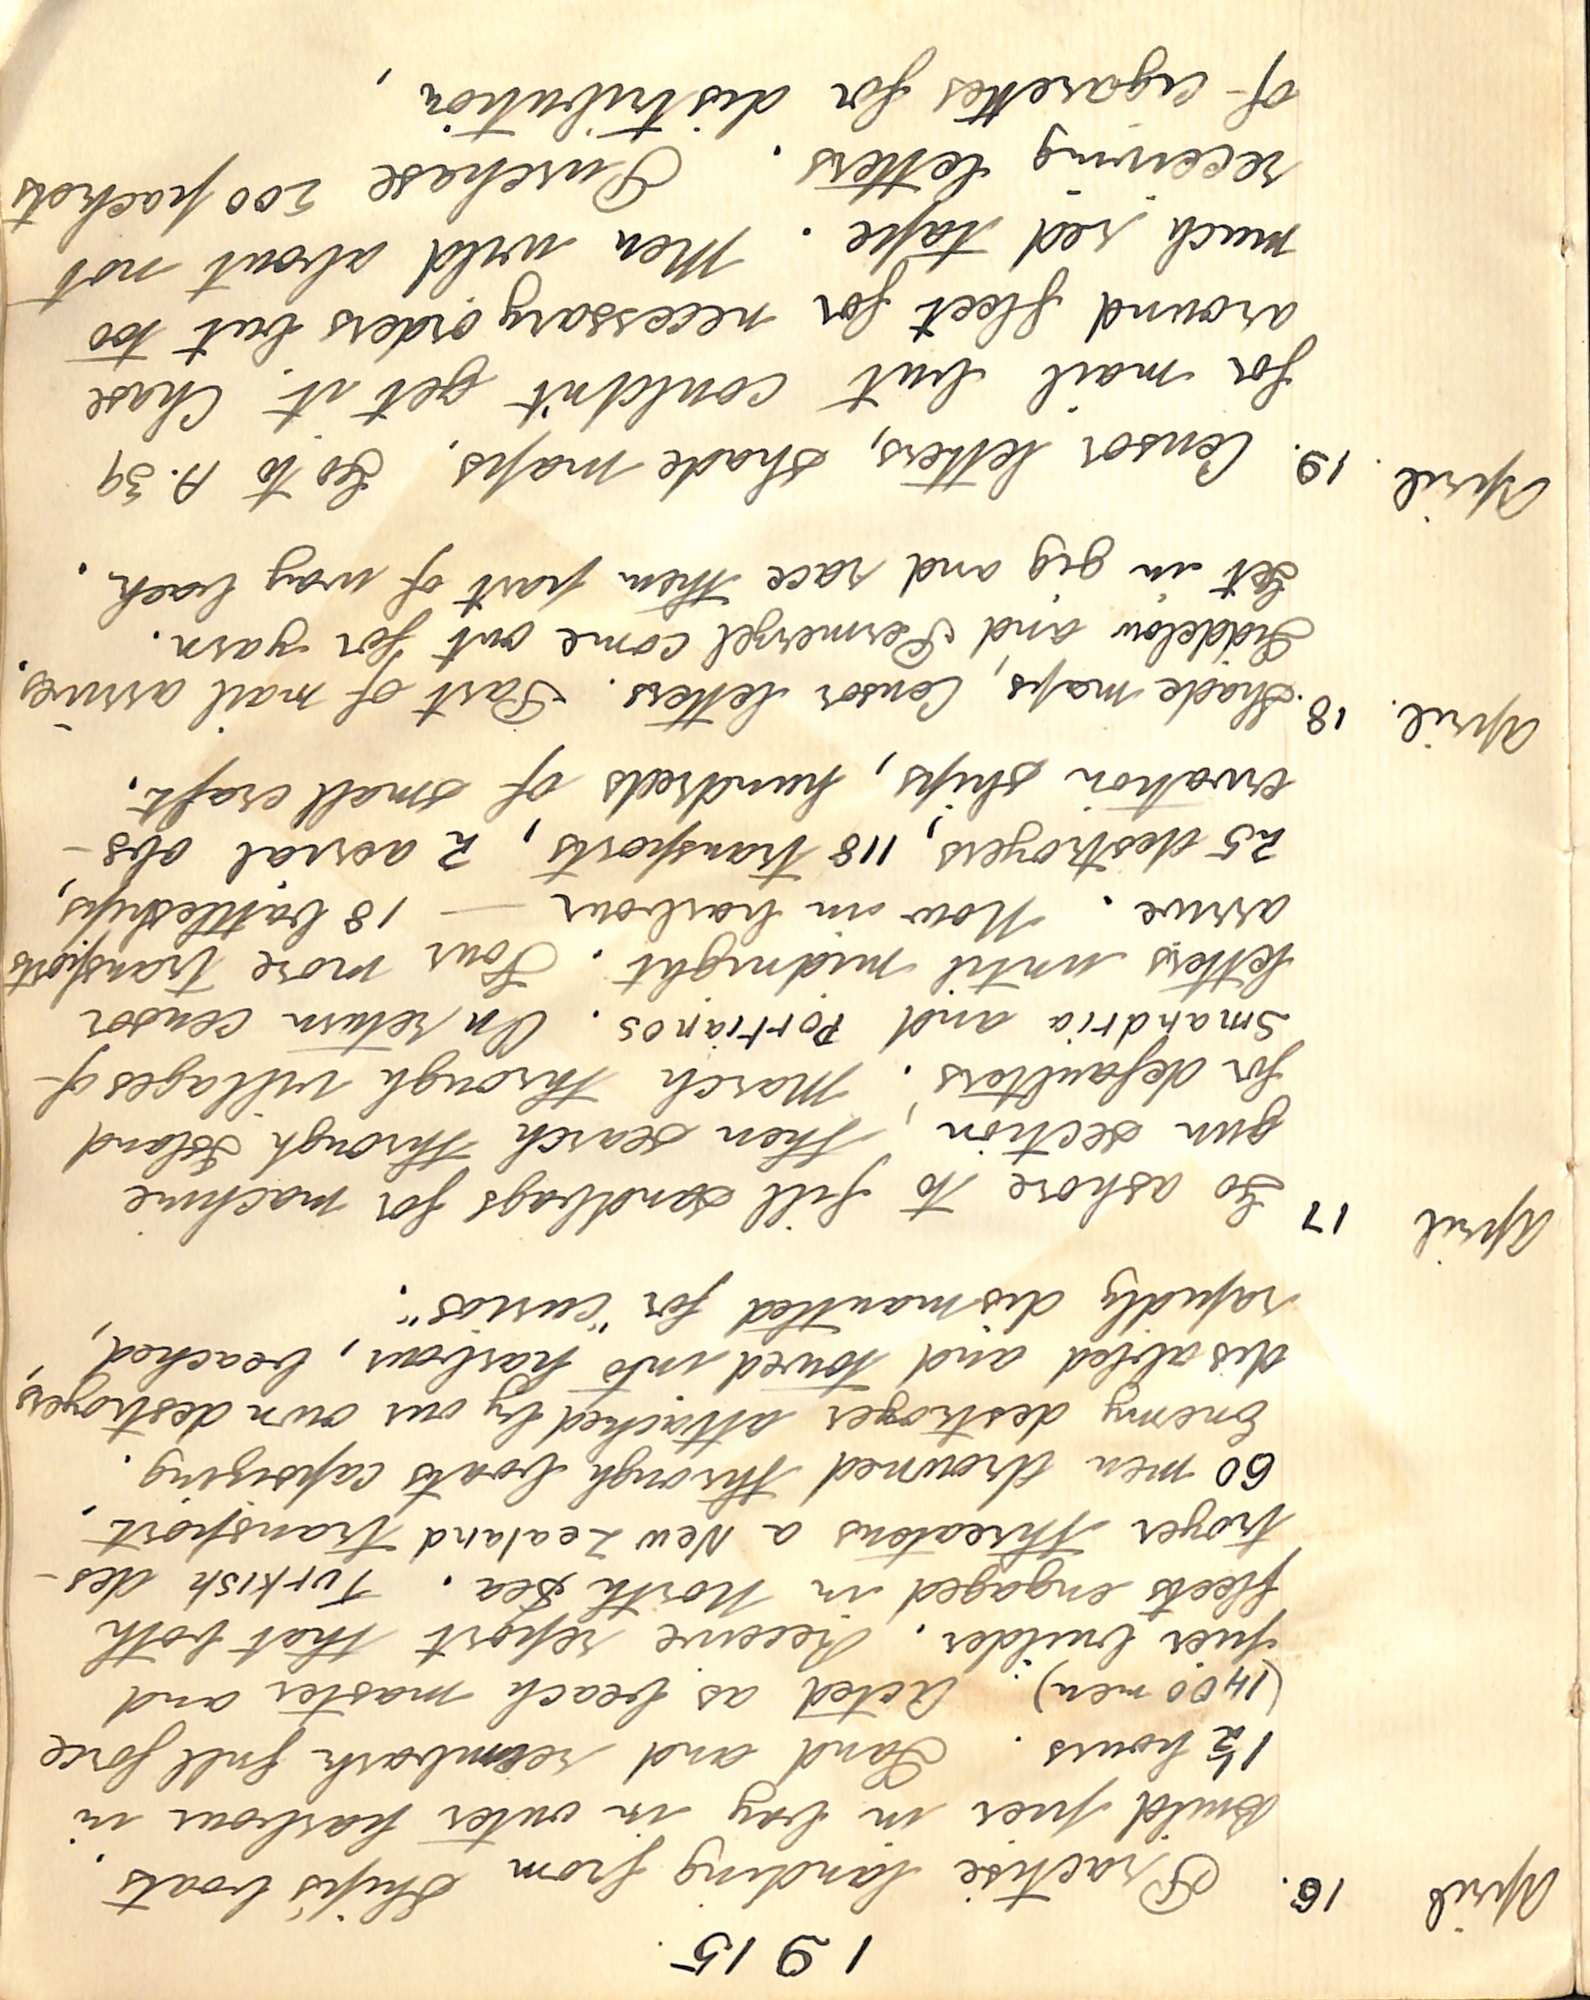 1915.
April 16. Practise landing from ship's boats.
Build pier in bay in outer harbour in
1½ hours. Land and reembark full force
(1400 men). Acted as beach master and
pier builder. Receive report that both
fleets engaged in North Sea. Turkish des-
troyer threatens a New Zealand transport.
60 men drowned through boats capsizing.
Enemy destroyer attacked by our own destroyers,
disabled and towed into harbour, beached,
rapidly dismantled for "curios".
April 17 Go ashore to fill sandbags for machine
gun section, then search through Island
for defaulters. March through villages of
Smandria and Portianos. On return censor
letters until midnight. Four more transports
arrive. Now in harbour — 18 battleships,
25 destroyers, 118 transports, 2 aerial obs-
ervation ships, hundreds of small craft.
April. 18. Shade maps, Censor letters. Part of mail arrives.
Liddelow and Permezel come out for yarn.
Get in gig and race them part of way back.
April. 19. Censor letters, shade maps. Go to A.39
for mail but couldn't get it. Chase
around fleet for necessary orders but too
much red tape. Men wild about not
receiving letters. Purchase 500 packets
of cigarettes for distribution,